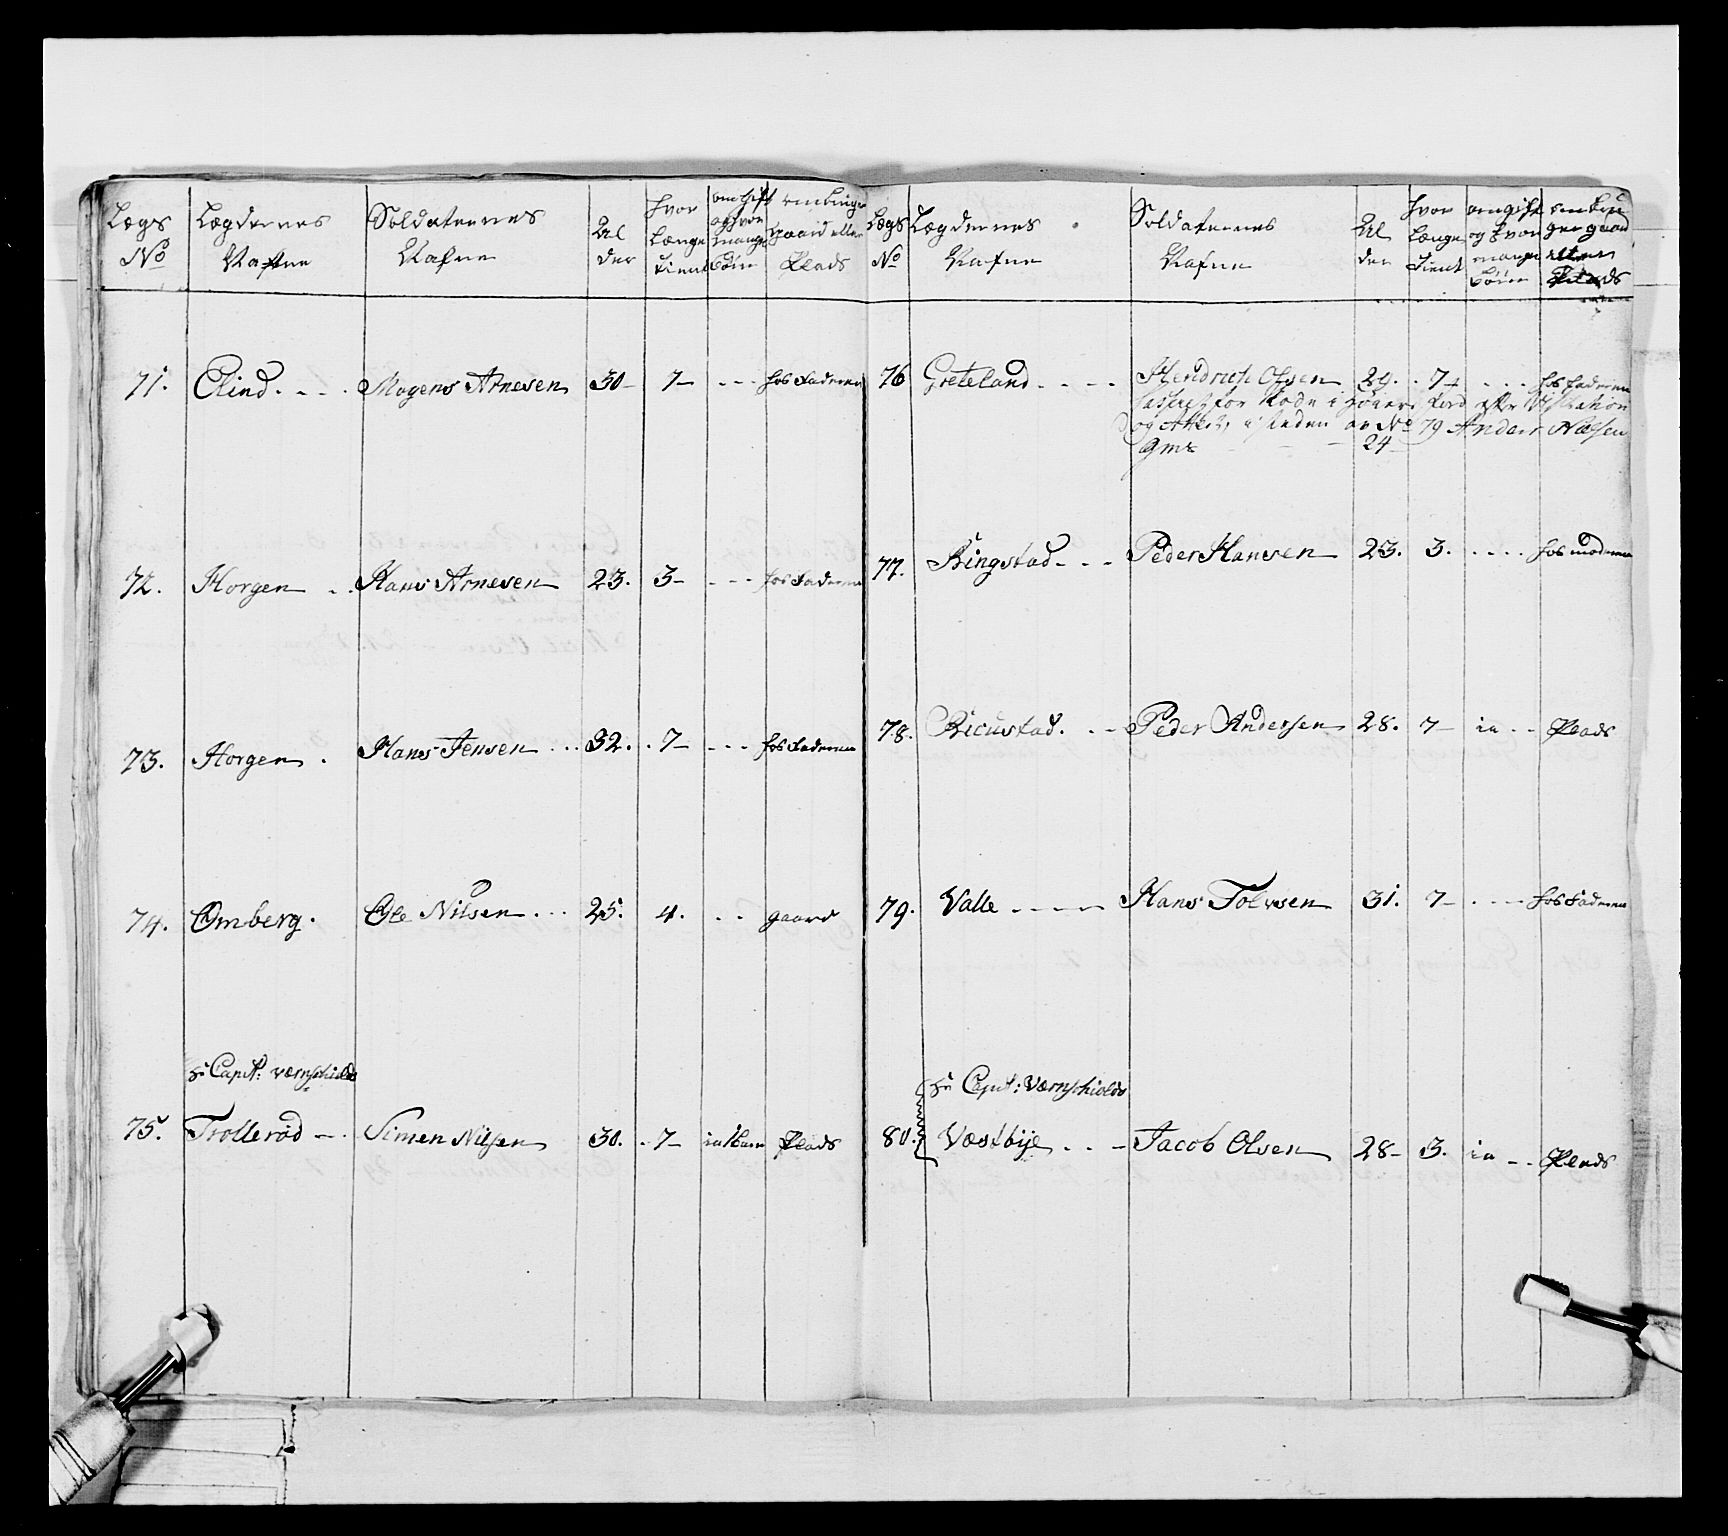 Lægs No | Lægdernes Nafne | Soldaternes Nafne | Alder | hvor Længe tient | om gift og hvor mange børn | om bruger gaard eller Plads
71. Elind | Mogens Arnesen | 30 | 7 | hos Faderen
72. Horgen | Hans Arnesen | 23. | 3 | hos Faderen
73. Horgen | Hans Jensen | 32. | 7 | hos Faderen
74. Omberg. | Ole Nilsen | 25. | 4. | gaard
Hr Capit: Værnschiolds
75. Trollerød | Simen Nilsen | 30. | 7 | ia 1 barn | Plads
Lægs No | Lægdernes Nafne | Soldaternes Nafne | Alder | hvor Længe tient | om gift og hvor mange børn | om bruger gaard eller Plads
76 Greteland | Hendrich Olsen | 29. | 7 | hos faderen
for i efter
og i steden av No 79 Anders
24
77. Ringstad | Peder Hansen | 23. | 3. | hos moderen
78. Ricustad. | Peder Andersen | 28. | 7 | ia | Plads
79. Valle | Hans Tolvsen | 31. | 7 | hos Faderen
Hr Capit: Værnschiolds
80. Væstbÿe | Jacob Olsen | 28 | 3. | ia | Plads